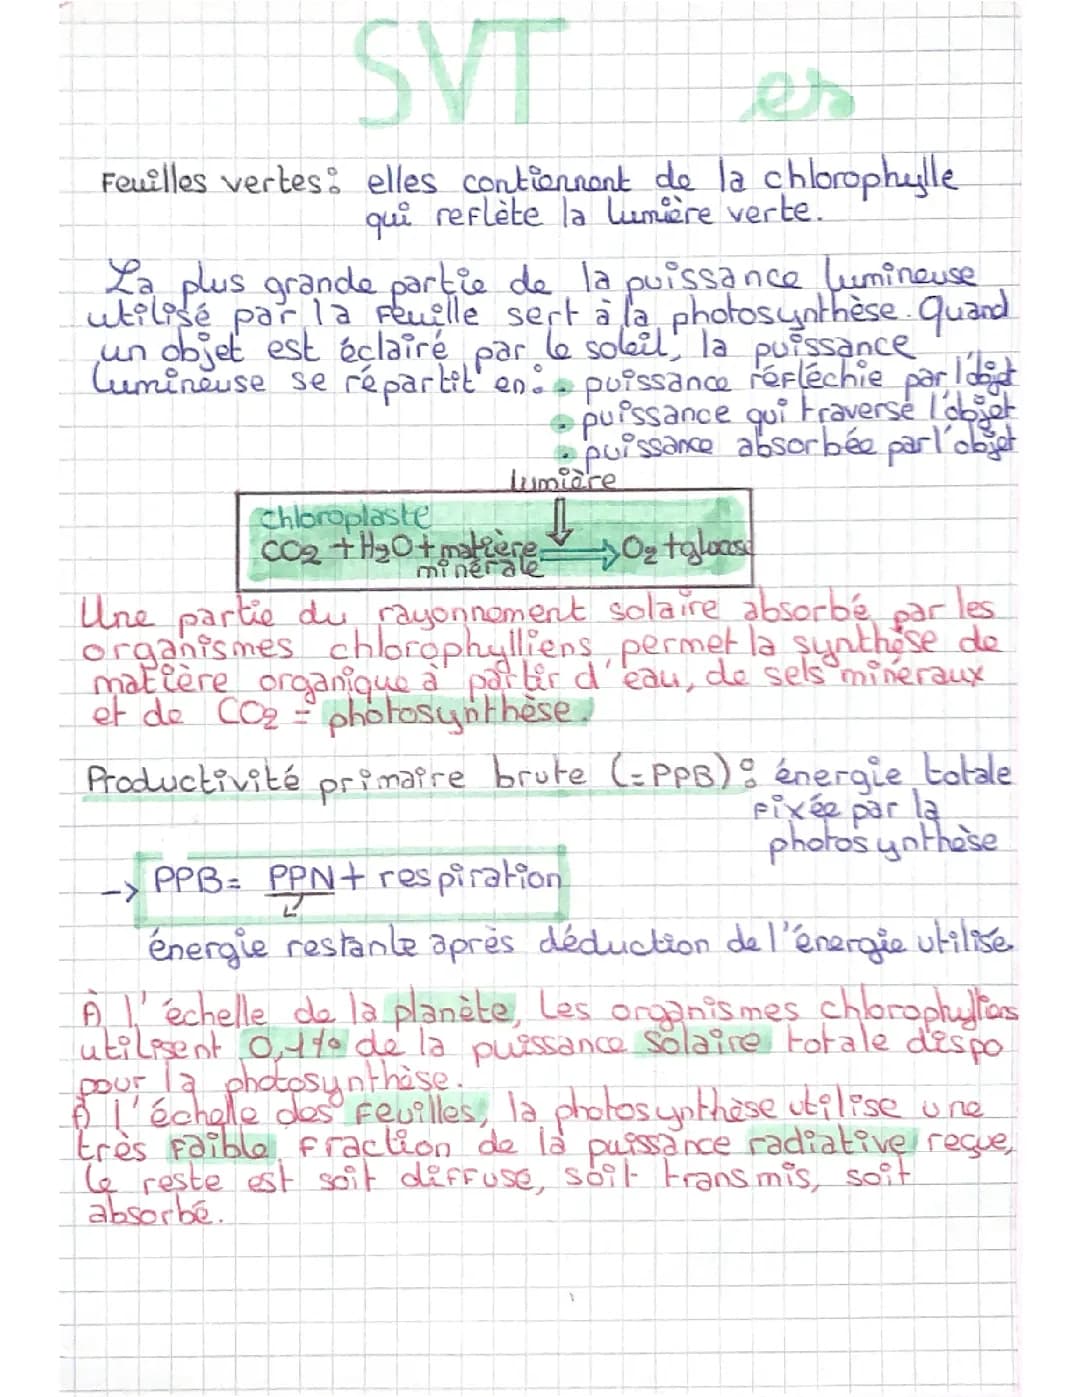 SVT es
Feuilles vertes : elles contiennent de la chlorophylle
qui reflète la lumière verte.
La plus grande partie de la puissance lumineuse
utilisé par la feuille sert à la photosynthèse. Quand
un objet est éclairé par le soleil, la puissance
lumineuse se répartit en : • puissance réfléchie par l'objet
• puissance qui traverse l'objet
• puissance absorbée par l'objet
lumière
chloroplaste
CO2 + H2O + matière ⇒ O2 + glucose
minérale
Une partie du rayonnement solaire absorbé par les
organismes chlorophylliens permet la synthèse de
matière organique à partir d'eau, de sels minéraux
et de CO2 = photosynthèse.
Productivité primaire brute (=PPB) : énergie totale
fixée par la
photosynthèse
-> PPB = PPN + respiration
énergie restante après déduction de l'énergie utilisé
À l'échelle de la planète, les organismes chlorophylliens
utilisent 0,1% de la puissance solaire totale dispo
pour la photosynthèse.
À l'échelle des feuilles, la photosynthèse utilise une
très faible fraction de la puissance radiative reçue,
le reste est soit diffusé, soit transmis, soit
absorbé.